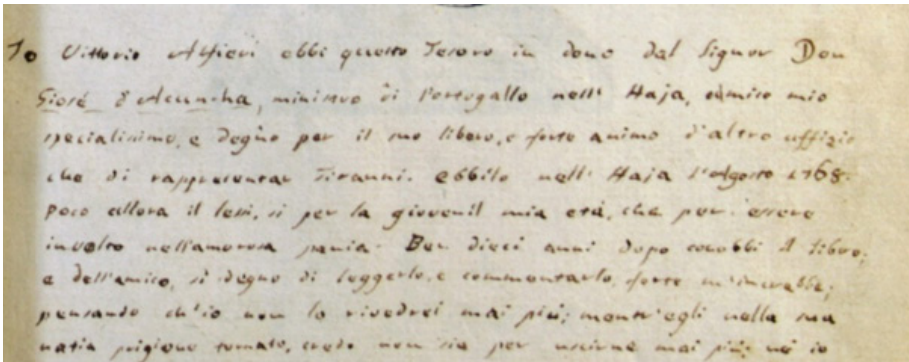 Io Vittorio Alfieri ebbi questo Tesoro in dono dal Signor Don
Giosé d'Acuncha, ministro di Portogallo nell' Haja, amico mio
specialissimo, e degno per il suo libero, e forte animo d'altro uffizio
che di rappresentar Tiranni. ebbilo nell' Haja l'Agosto 1768.
poco allora il lessi, sì per la giovenil mia età, che per essere
involto nell'amorosa pania. Ben dieci anni dopo conobbi il libro;
e dell'amico, sì degno di leggerlo, e commentarlo, forte m'increbbe;
pensando ch'io non lo rivedrei mai più; mentr'egli nella sua
natia prigione tornato, credo non sia per uscirne mai più; nè io